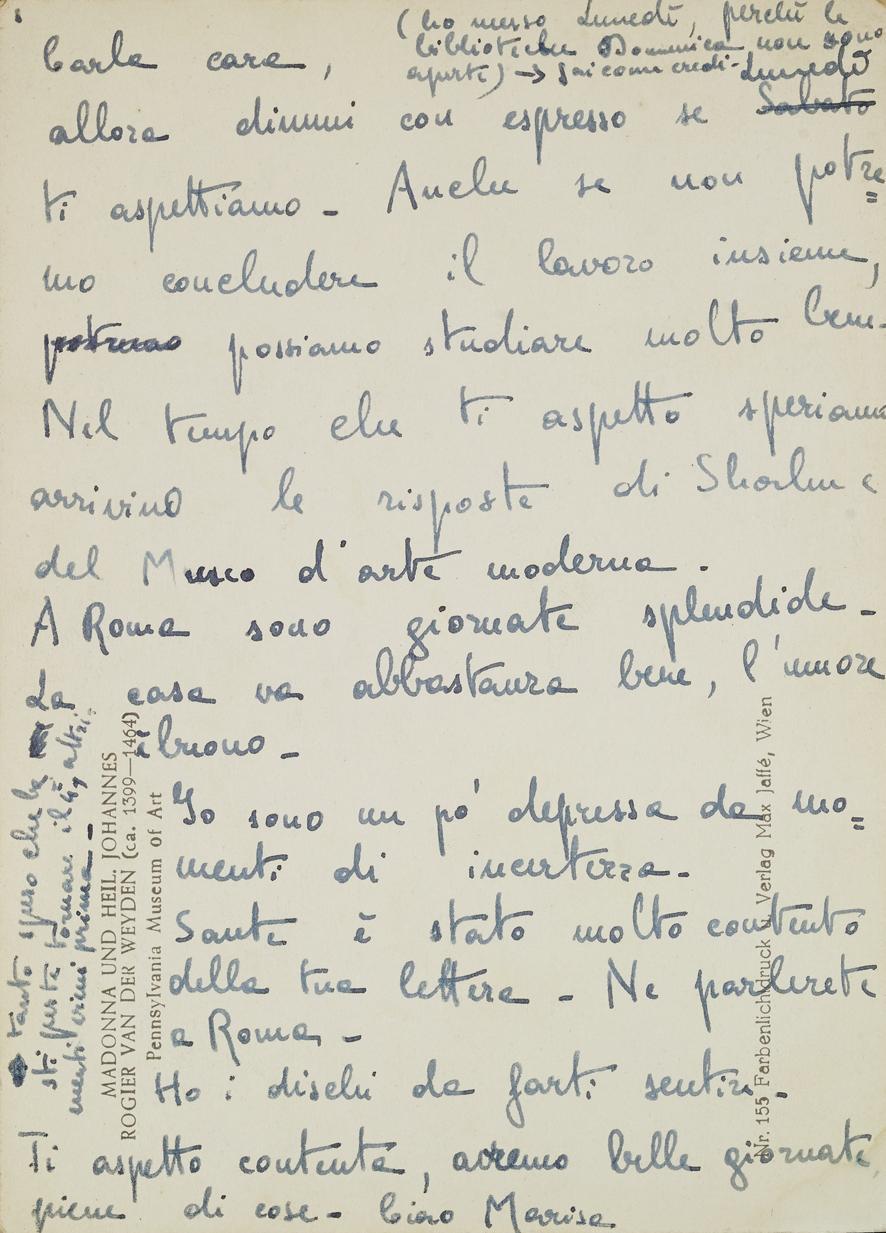 (ho messo Lunedì, perché le
biblioteche Domenica non sono
aperte) → fai come credi -
Carla cara,
Lunedì
allora dimmi con espresso se Sabato
ti aspettiamo - Anche se non potre=
mo concludere il lavoro insieme,
potremo possiamo studiare molto bene -
Nel tempo che ti aspetto speriamo
arrivino le risposte di e
del Museo d'arte moderna.
A Roma sono giornate splendide -
La casa va abbastanza bene, l'umore
è buono -
Io sono un po' depressa da mo=
menti di incertezza -
Sante è stato molto contento
della tua lettera - Ne parlerete
a Roma -
Ho i dischi da farti sentire -
Ti aspetto contenta, avremo belle giornate
piene di cose - Ciao Marisa
tanto spero che tu
sti parta tornare il altri
menti prima -
MADONNA UND HEIL. JOHANNES
ROGIER VAN DER WEYDEN (ca. 1399—1464)
Pennsylvania Museum of Art
Nr. 155 Farbenlichtdruck u. Verlag Max Jaffé, Wien